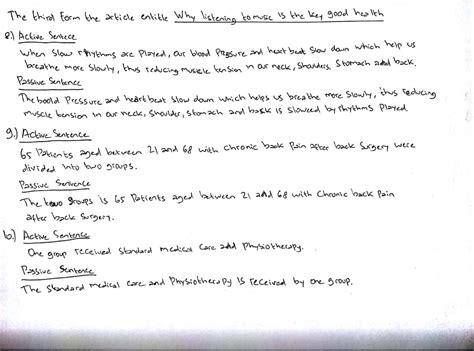 The third form the article entitle Why listening to music is the key good health
e.) Active Sentece
When slow rhythms are Played, our blood Pressure and heart beat slow down which help us
breathe more slowly, thus reducing muscle tension in our neck, shoulders, stomach and back.
Passive Sentence
The boold Pressure and heart beat slow down which helps us breathe more slowly, thus reducing
muscle tension in our neck, shoulder, stomach and back is slowed by rhythms Played.
9.) Active Sentence
65 Patients aged between 21 and 68 with chronic back Pain after back surgery were
divided into two groups.
Passive Sentence
The two groups is 65 Patients aged between 21 and 68 with chronic back Pain
after back surgery.
b.) Active Sentence
One group received standard medical care and Physiotherapy.
Passive Sentence
The standard medical care and Physiotherapy is received by one group.